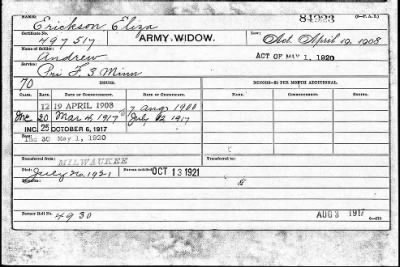 NAME: 84923 (3—P.A.E.)
Erickson Eliza
Certificate No. Law:
497517 ARMY WIDOW. Act April 19, 1908
Name of Soldier:
Andrew ACT OF MAY 1, 1920
Service:
Pri F. 3 Minn
70 ISSUES. MINORS—$2 PER MONTH ADDITIONAL.
CLASS. RATE. DATE OF COMMENCEMENT. DATE OF CERTIFICATE.
12 19 APRIL 1908 7 Aug 1908
Inc 20 Mar 4, 1917 July 12 1917
INC. 25 OCTOBER 6, 1917
Inc 30 May 1, 1920
Transferred from: Transferred to:
MILWAUKEE
Died: Bureau notified OCT 13 1921
July 20 1921
Former Roll No. AUG 3 1917
4930